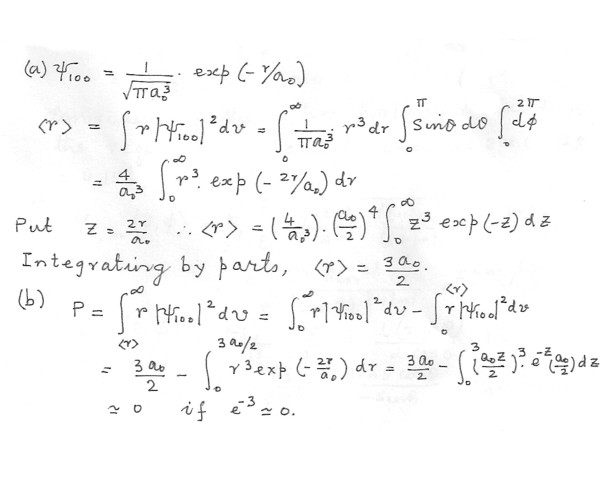 (a) ψ₁₀₀ = 1/√(πa₀³) · exp(-r/a₀)
<r> = ∫ r|ψ₁₀₀|² dv = ∫₀^∞ 1/(πa₀³) · r³ dr ∫₀^π sinθ dθ ∫₀^2π dφ
= 4/a₀³ ∫₀^∞ r³ · exp(-2r/a₀) dr
Put z = 2r/a₀ ∴ <r> = (4/a₀³) · (a₀/2)⁴ ∫₀^∞ z³ exp(-z) dz
Integrating by parts, <r> = 3a₀/2.
(b) P = ∫_<r>^∞ r|ψ₁₀₀|² dv = ∫₀^∞ r|ψ₁₀₀|² dv - ∫₀^<r> r|ψ₁₀₀|² dv
= 3a₀/2 - ∫₀^3a₀/2 r³ exp(-2r/a₀) dr = 3a₀/2 - ∫₀^3 (a₀z/2)³ · e^-z (a₀/2) dz
≃ 0 if e⁻³ ≃ 0.